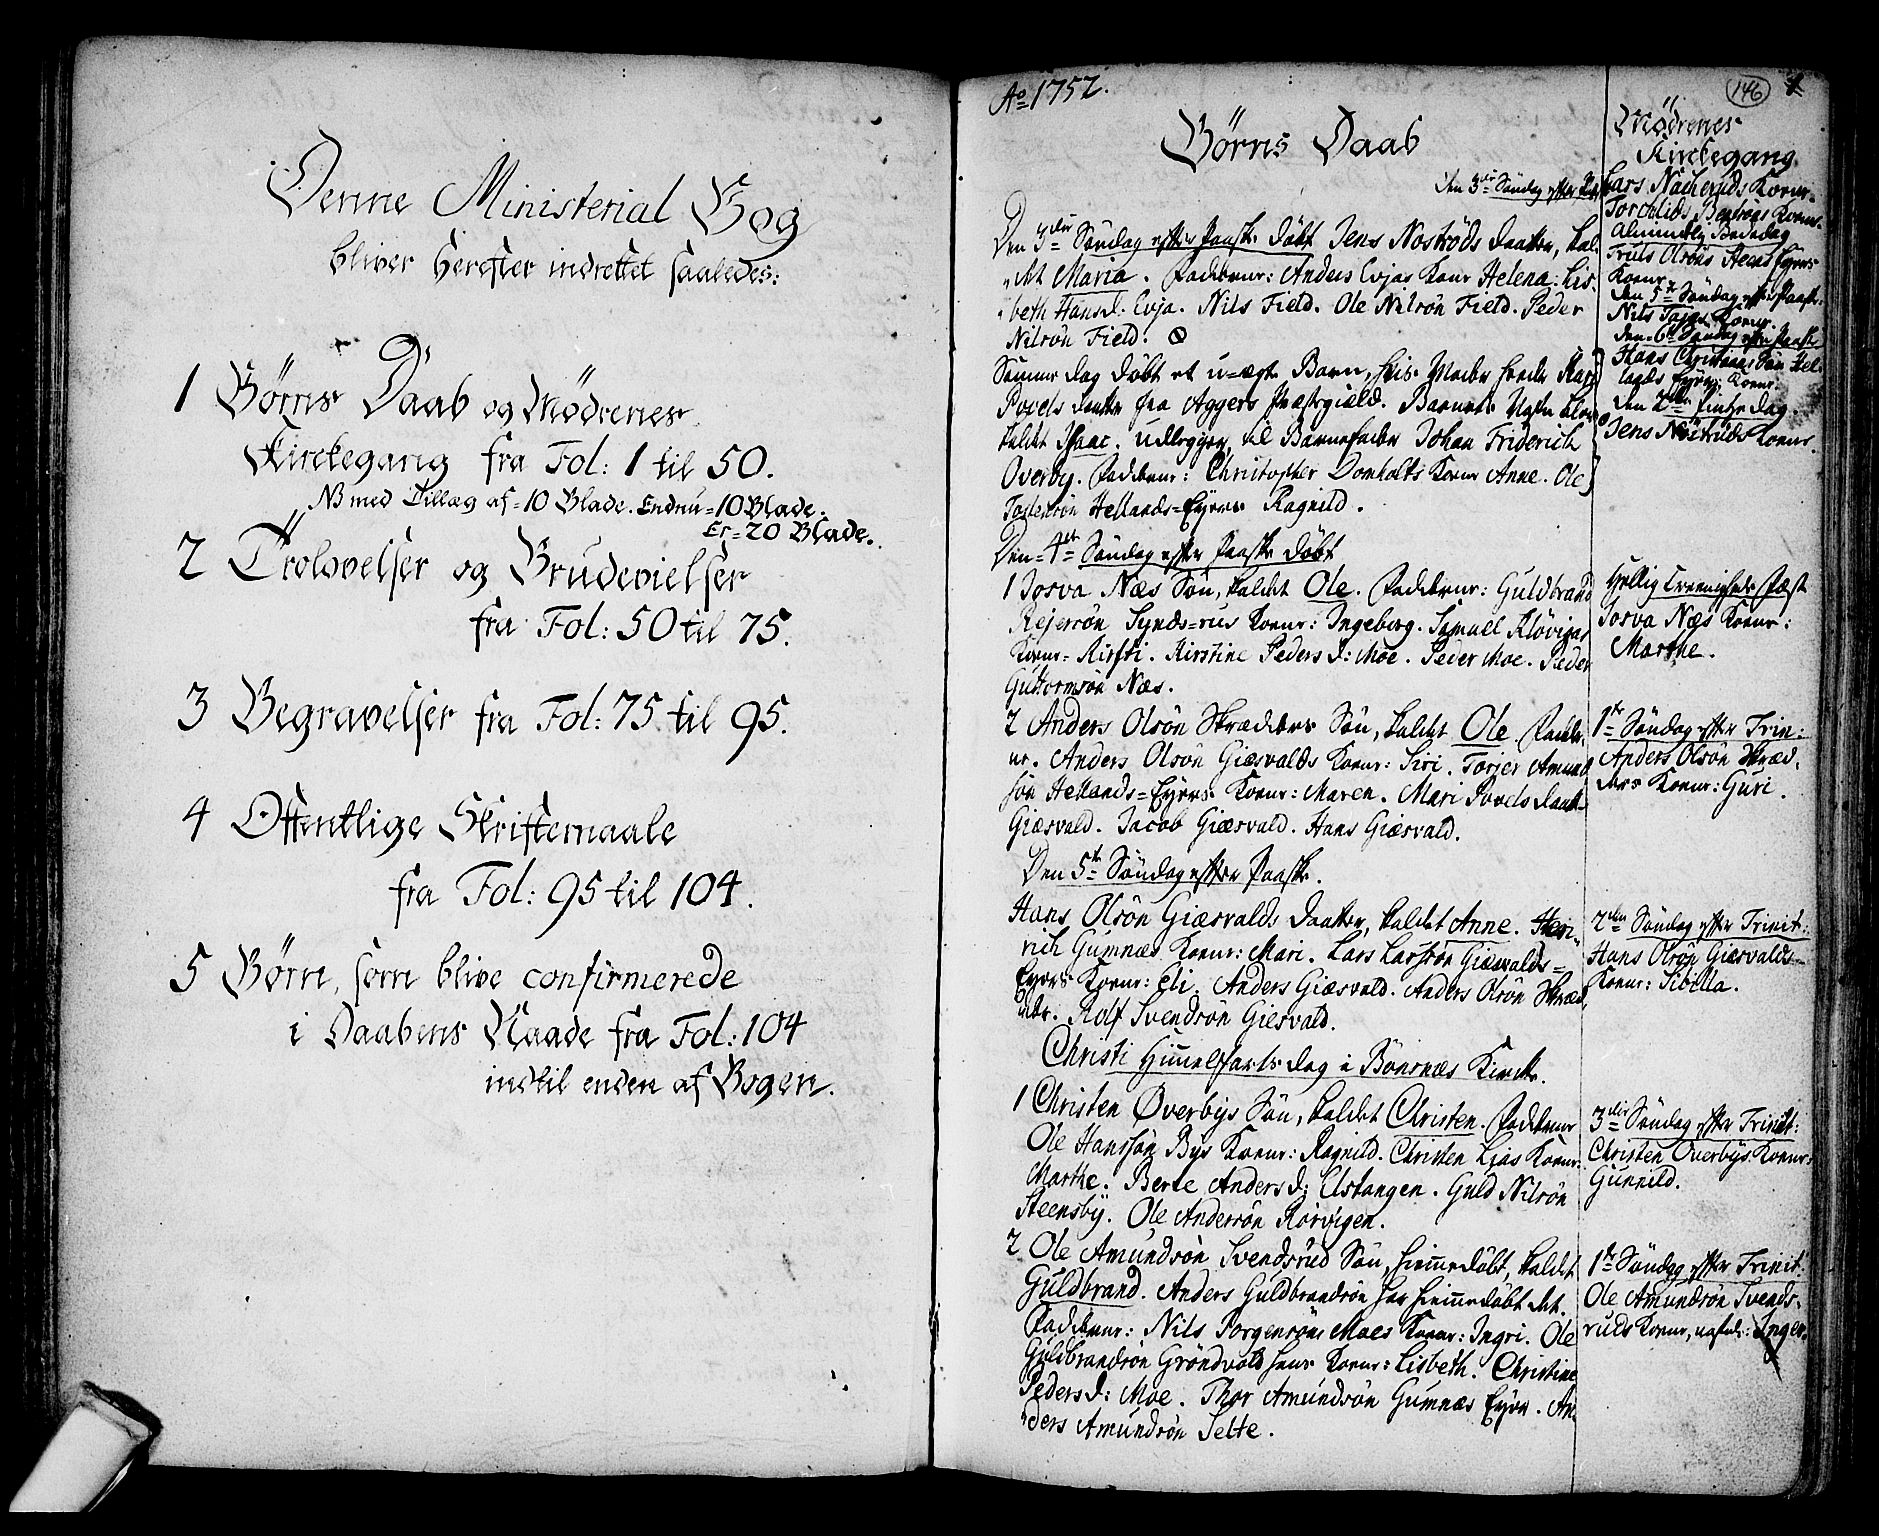 Denne Ministerial Bog
bliver herefter indrettet saaledes:
1 Børns Daab og Mødrenes
Kirckegang fra Fol: 1 til 50.
NB med Tillæg af = 10 Blade. Endnu = 10 Blade.
Er = 20 Blade.
2 Trolovelser og Brudevielser
fra Fol: 50 til 75.
3 Begravelser fra Fol: 75 til 95.
4 Offentlige Skriftemaale
fra Fol: 95 til 104.
5 Børn, som blive confirmerede
i Daabens Naade fra Fol: 104
indtil enden af Bogen.
Ao 1752.
146
Børns Daab
den 3die Søndag efter
Den 3die Søndag efter Paaske døbt Jens Nostrøds daatter, kal-
det Maria. Fadderne: Anders Evjas Kone Helena. Lis-
beth Hansd: Evja. Nils Field. Ole Nilsøn Field. Peder
Nilsøn Field.
Samme dag døbt et u-ægte Barn, hvis Moder heeder
Povels daatter fra Aggers Præstegield. Barnets Nafn blev
kaldet Isaac. Udlegger til Barnefader Johan Friderich
Overby. Fadderne: Christopher Domholts Kone Anne. Ole
Tostensøn Hellands-Eyres Ragnild.
Den 4de Søndag efter Paaske døbt
1 Josva Næs Søn, kaldet Ole. Fadderne: Guldbrand
Rejersøn Synds-rus Kone: Ingeborg. Samuel Kløvigas
Kone- Kirsti. Kirstine Peders d: Moe. Peder Moe. Peder
Guttormsøn Næs.
2 Anders Olsøn Skrædders Søn, kaldet Ole. Fadder-
ne. Anders Olsøn Giæsvalds Kone: Siri. Torjer Amund-
søn Hellands-Eyres Kone: Maren. Mari Povels daatter
Giæsvald. Jacob Giæsvald. Hans Giæsvald.
Den 5te Søndag efter Paaske.
Hans Olsøn Giæsvalds daatter, kaldet Anne. Hen-
rich Gumnæs Kone: Mari. Lars Larssøn Giæsvalds-
Eyres Kone: Eli. Anders Giæsvald. Anders Olsøn Skræd-
der. Rolf Svendsøn Giesvald.
Christi Himmelfarts dag i Bønsnæs Kircke.
1 Christen Øverbys Søn, kaldet Christen. Fadderne
Ole Hanssøn Bys Kone: Ragnild. Christen Ljas Kone:
Marthe. Berte Anders d: Elstangen. Guld Nilsøn
Steensby. Ole Andersøn Rørvigen.
2 Ole Amundsøn Svendsrud Søn, hiemmedøbt, kaldet
Guldbrand. Anders Guldbrandsøn har hiemmedøbt det.
Fadderne: Nils Jorgensøns Moes Kone: Ingri. Ole
Guldbrandsøn Grøndvold hans Kone: Lisbeth. Christine
Peders d: Moe. Thor Amundsøn Gumnæs Eyre. An-
ders Amundsøn Selte.
Mødrenes
Kirckegang.
Lars Kone-
Kone.
Almindelig Bededag
Truls Olsøns Steens Eyres
Kone.
den 5te Søndag efter Paaske.
Nils Kone.
den 6te Søndag efter Paaske
Hans Christians Søn Hel-
lands Eyres Kone:
den 2den Pintzedag.
Jens Nostruds Kone.
Hellig Treenigheds Fæst
Josva Næs Kone:
Marthe.
1te Søndag efter Trin:
Anders Olsøn Skræd-
ders Kone: Guri.
2den Søndag efter Trinit:
Hans Olsøn Giæsvalds-
Kone: Sibilla.
3die Søndag efter Trinit:
Christen Øverbys Kone:
Gunnild.
1te Søndag efter Trinit:
Ole Amundsøn Svends-
ruds Kone, nafnl: Inger.